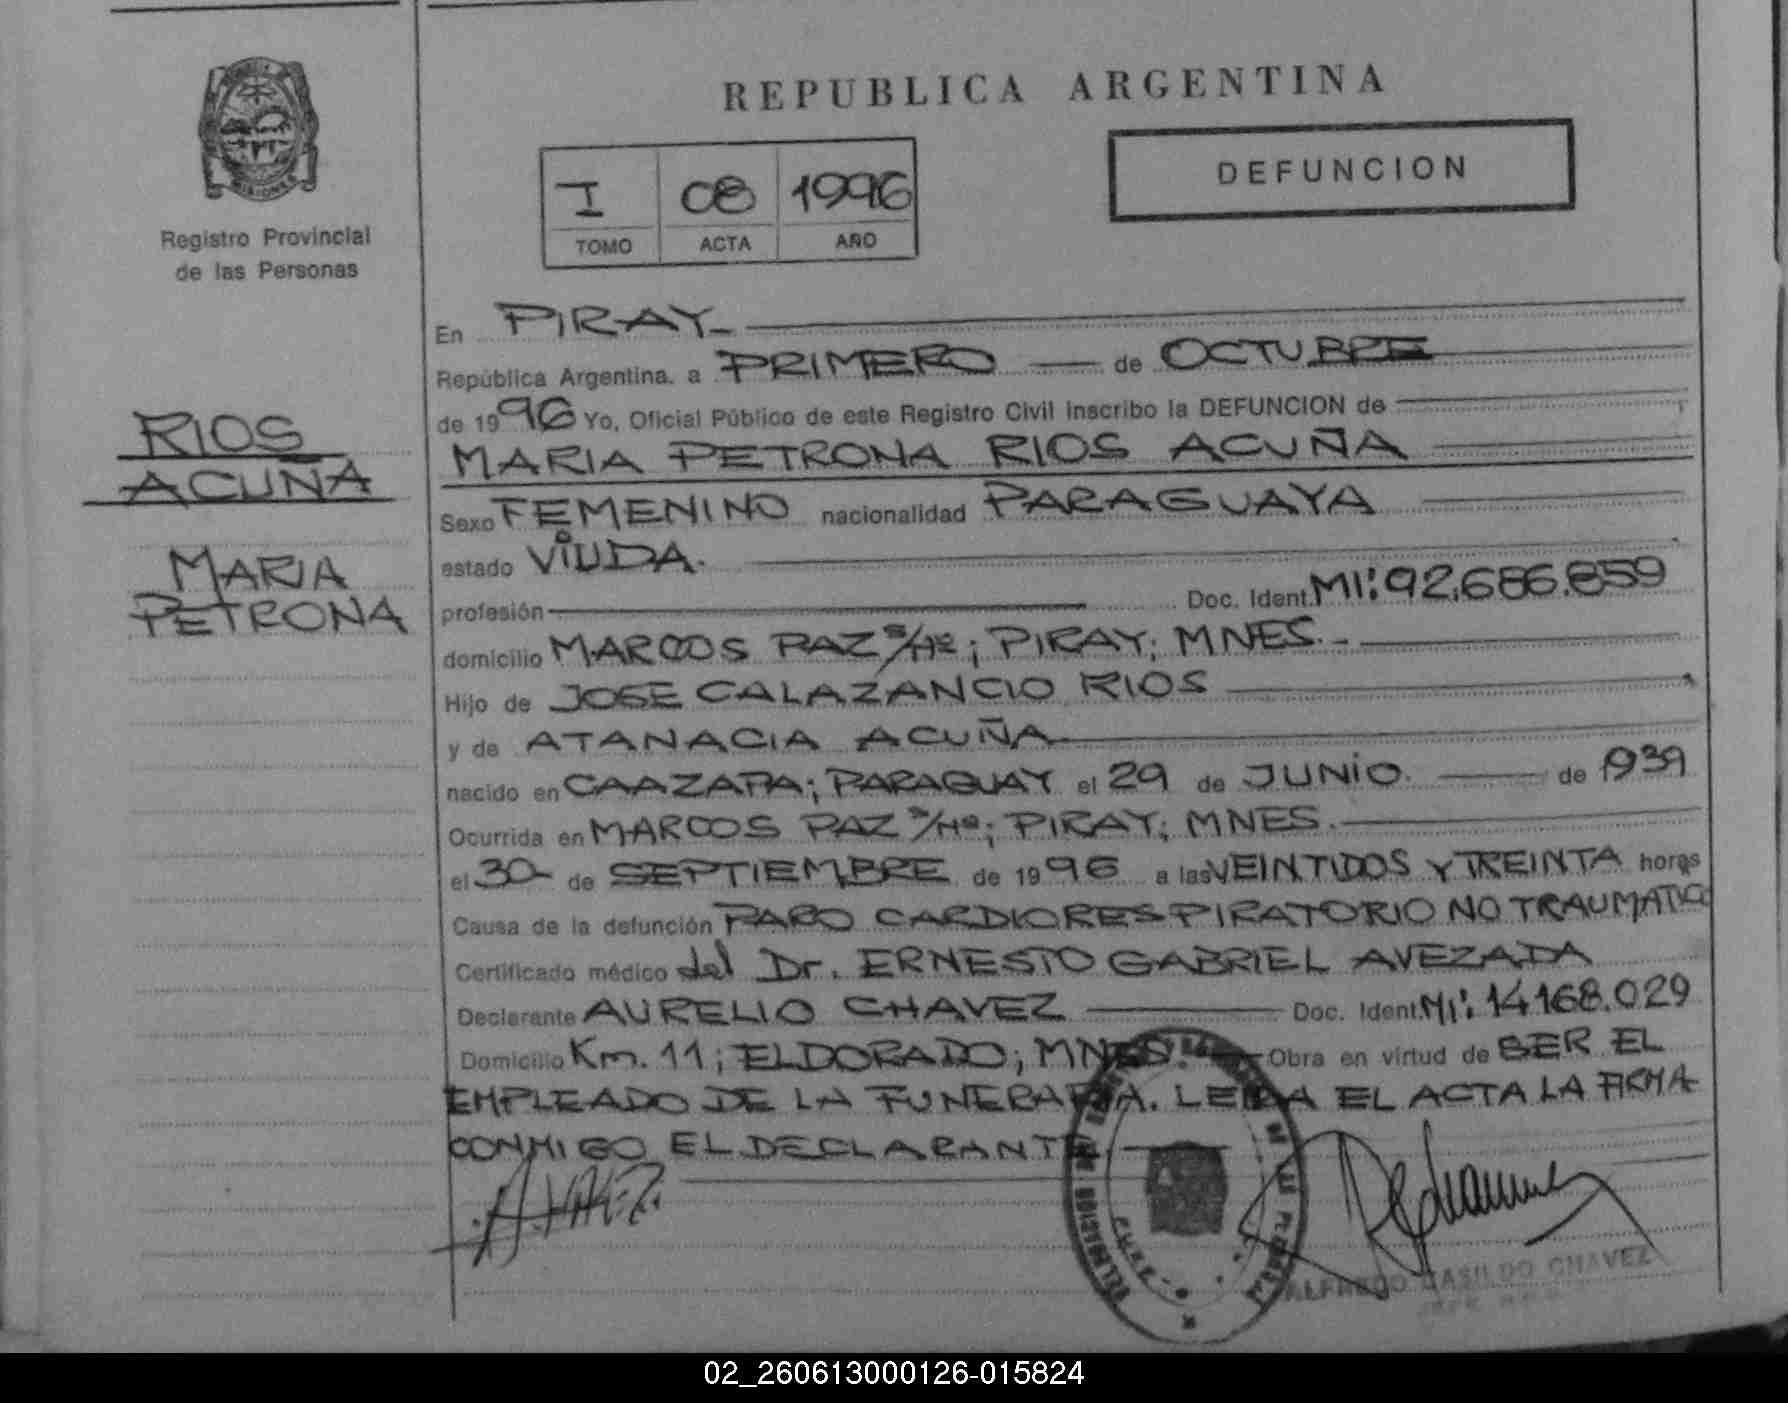 REPUBLICA ARGENTINA
DEFUNCION
I 08 1996
TOMO ACTA AÑO
MISIONES
Registro Provincial
de las Personas
RIOS
ACUÑA
MARIA
PETRONA
En PIRAY
República Argentina. a PRIMERO de OCTUBRE
de 1996 Yo, Oficial Público de este Registro Civil inscribo la DEFUNCION de
MARIA PETRONA RIOS ACUÑA
Sexo FEMENINO nacionalidad PARAGUAYA
estado VIUDA.
profesión Doc. Ident. MI: 92.686.859
domicilio MARCOS PAZ S/Nº; PIRAY; MNES.
Hijo de JOSE CALAZANCIO RIOS
y de ATANACIA ACUÑA
nacido en CAAZAPA; PARAGUAY el 29 de JUNIO. de 1939
Ocurrida en MARCOS PAZ S/Nº; PIRAY; MNES.
el 30 de SEPTIEMBRE de 1996 a las VEINTIDOS Y TREINTA horas
Causa de la defunción PARO CARDIORESPIRATORIO NO TRAUMATICO
Certificado médico del Dr. ERNESTO GABRIEL AVEZADA
Declarante AURELIO CHAVEZ Doc. Ident. MI: 14168.029
Domicilio Km. 11; ELDORADO; MNES. Obra en virtud de SER EL
EMPLEADO DE LA FUNERARIA. LEIDA EL ACTA LA FIRMA
CONMIGO EL DECLARANTE
ALFREDO CASILDO CHAVEZ
02_260613000126-015824